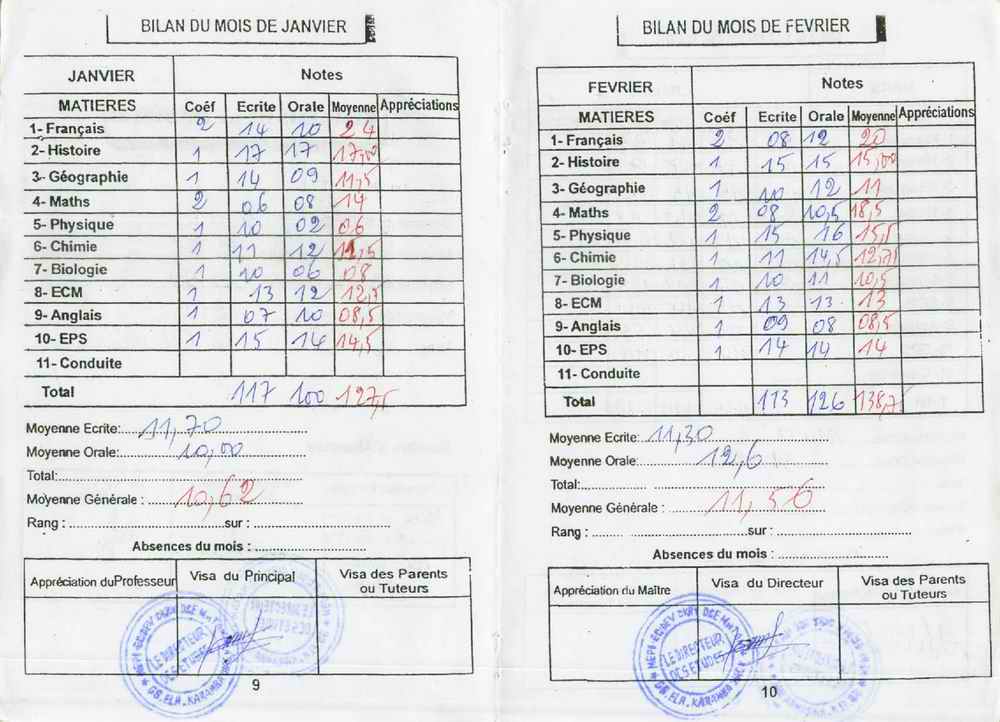 BILAN DU MOIS DE JANVIER
JANVIER Notes
MATIERES Coéf Ecrite Orale Moyenne Appréciations
1- Français 2 14 10 24
2- Histoire 1 17 17 17,00
3- Géographie 1 14 09 11,5
4- Maths 2 06 08 14
5- Physique 1 10 02 06
6- Chimie 1 11 12 11,5
7- Biologie 1 10 06 08
8- ECM 1 13 12 12,5
9- Anglais 1 07 10 08,5
10- EPS 1 15 14 14,5
11- Conduite
Total 117 100 127,5
Moyenne Ecrite: 11,70
Moyenne Orale: 10,00
Total:
Moyenne Générale : 10,62
Rang : sur :
Absences du mois :
Appréciation du Professeur Visa du Principal Visa des Parents ou Tuteurs
LE DIRECTEUR
DES ETUDES
9
BILAN DU MOIS DE FEVRIER
FEVRIER Notes
MATIERES Coéf Ecrite Orale Moyenne Appréciations
1- Français 2 08 12 20
2- Histoire 1 15 15 15,00
3- Géographie 1 10 12 11
4- Maths 2 08 10,5 18,5
5- Physique 1 15 16 15,5
6- Chimie 1 11 14,5 12,75
7- Biologie 1 10 11 10,5
8- ECM 1 13 13 13
9- Anglais 1 09 08 08,5
10- EPS 1 14 14 14
11- Conduite
Total 113 126 138,7
Moyenne Ecrite: 11,30
Moyenne Orale: 12,6
Total:
Moyenne Générale : 11,56
Rang : sur :
Absences du mois :
Appréciation du Maître Visa du Directeur Visa des Parents ou Tuteurs
LE DIRECTEUR
DES ETUDES
10